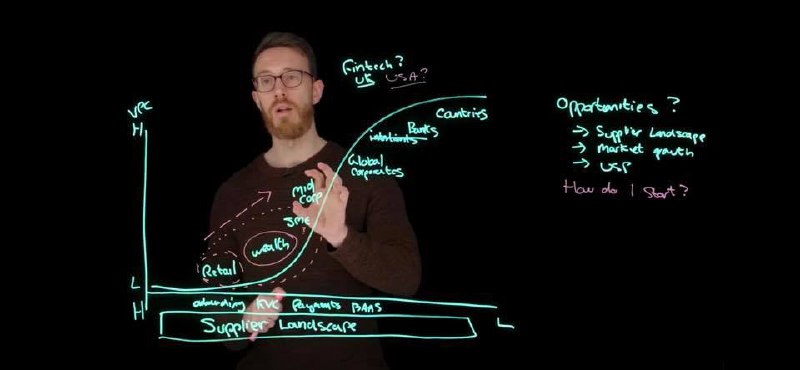 Fintech?
UK USA?
VPC
H
Countries
Banks
Global
Corporates
Mid
Corp
SME
Wealth
Retail
L
H
onboarding KYC Payments BAAS
Supplier Landscape
L
Opportunities?
→ Supplier Landscape
→ Market growth
→ USP
How do I Start?